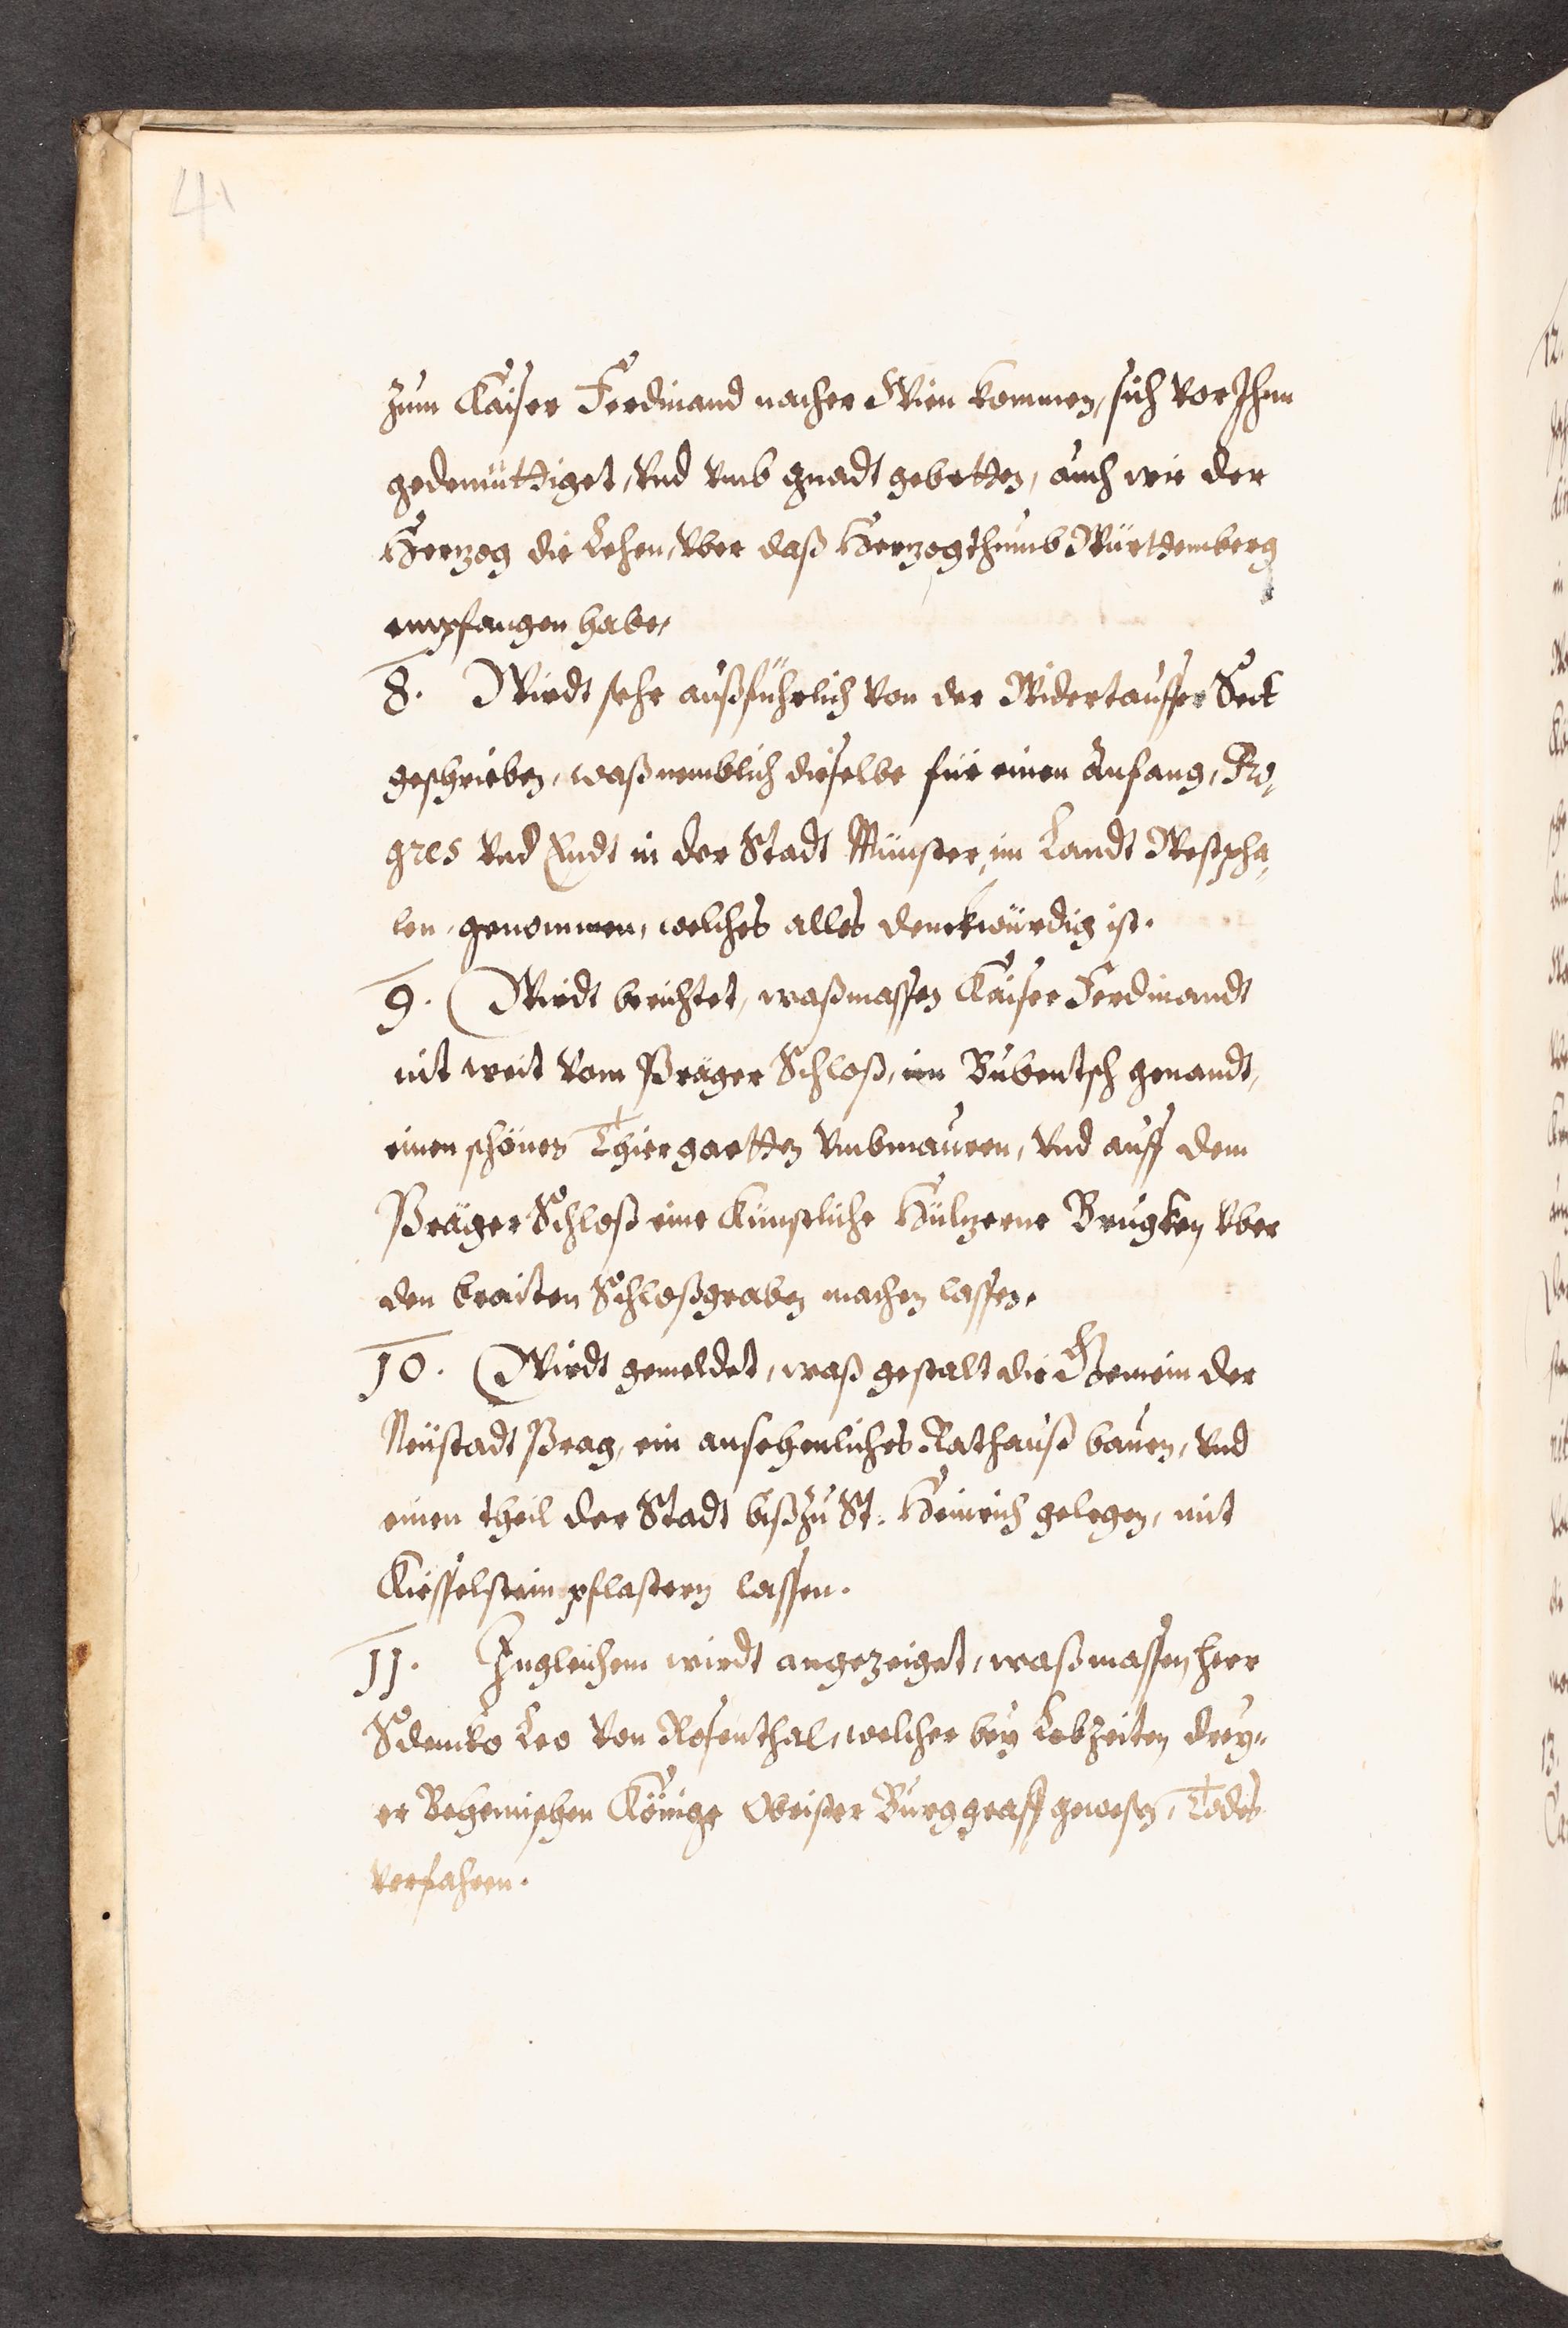 4
zum Kaiser Ferdinand nacher Wien kommen, sich vor Ihme
gedemüttiget, vnd vmb gnadt gebetten, auch wie der
Hertzog die Lehen, vber daß Hertzogthumb Württemberg
empfangen habe,
8. Wirdt sehr außführlich von der Widertauffer Sect
geschrieben, waß nemblich dieselbe für einen Anfang, Pro,
gres vnd Endt in der Stadt Münster, im Landt Westpha,
len, genommen, welches alles denckwürdig ist.
9. Wirdt berichtet, waßmassen Kaiser Ferdinandt
nit weit vom Prager Schloß, im Bubentsch genandt,
einen schönen Thiergartten vmbmauren, vnd auff dem
Prager Schloß eine Künstliche Hültzerne Brugken vber
den braiten Schloßgraben machen lassen.
10. Wirdt gemeldet, waß gestalt die Gemein der
Neustadt Prag, ein ansehenliches Rathauß bauen, vnd
einen theil der Stadt biß zu St. Heinrich gelegen, mit
Kießelstein pflastern lassen.
11. Ingleichem wirdt angezeiget, waßmassen herr
Sdenko Leo von Rosenthal, welcher bey Lebzeiten drey,,
er Behemischen Könige Obrister Burggraff gewesen, Todes
verfahren.